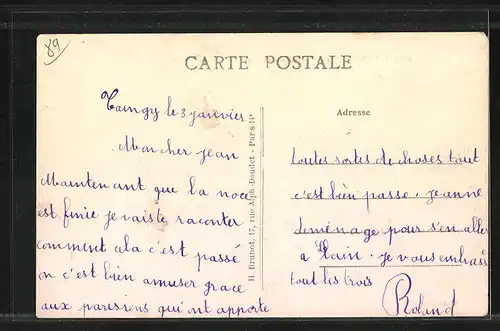 89
CARTE POSTALE
Taingy le 3 janvier
Mon cher Jean
Maintenant que la noce
est finie je vais te raconter
comment cela c'est passé
on c'est bien amuser grace
aux parisiens qui ont apporte
H. Brunot, 17, rue Alph-Daudet - Paris-14e
Adresse
toutes sortes de choses tout
c'est bien passe. Jeanne
demenage pour s'en aller
a Plain. je vous embrasse
tout les trois
Roland